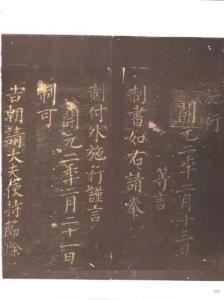 施行
開元二年二月十三日
等言
制書如右請奉
制付外施行謹言
開元二年二月二十一日
制可
告朝請大夫使持節滁